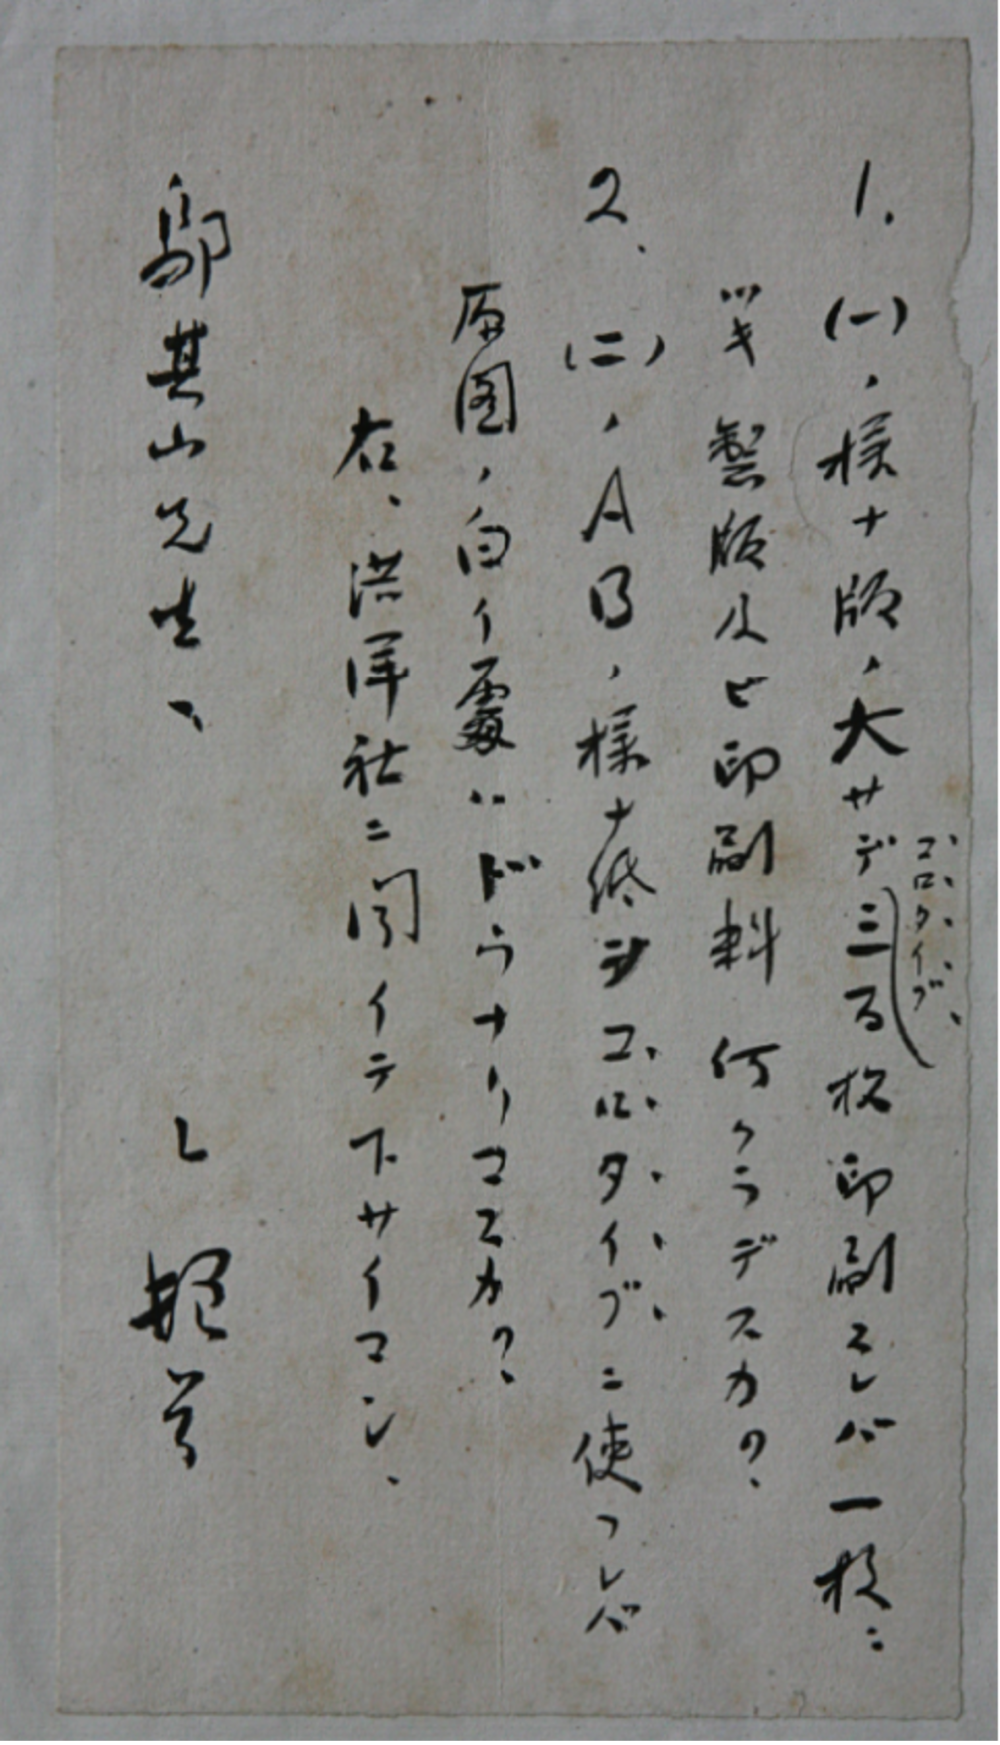 1. (一)ノ様ナ版ノ大サデ三百枚印刷スレバ一枚ニ
コロタイプ、
ツキ製版及ビ印刷料何クラデスカ?
2. (二)ノABノ様ナ紙ヲコロタイプニ使フレバ
原図ノ白イ處ハドウナリマスカ?
右、洪洋社ニ聞イテ下サイマシ、
鄔其山先生、
L 頓首